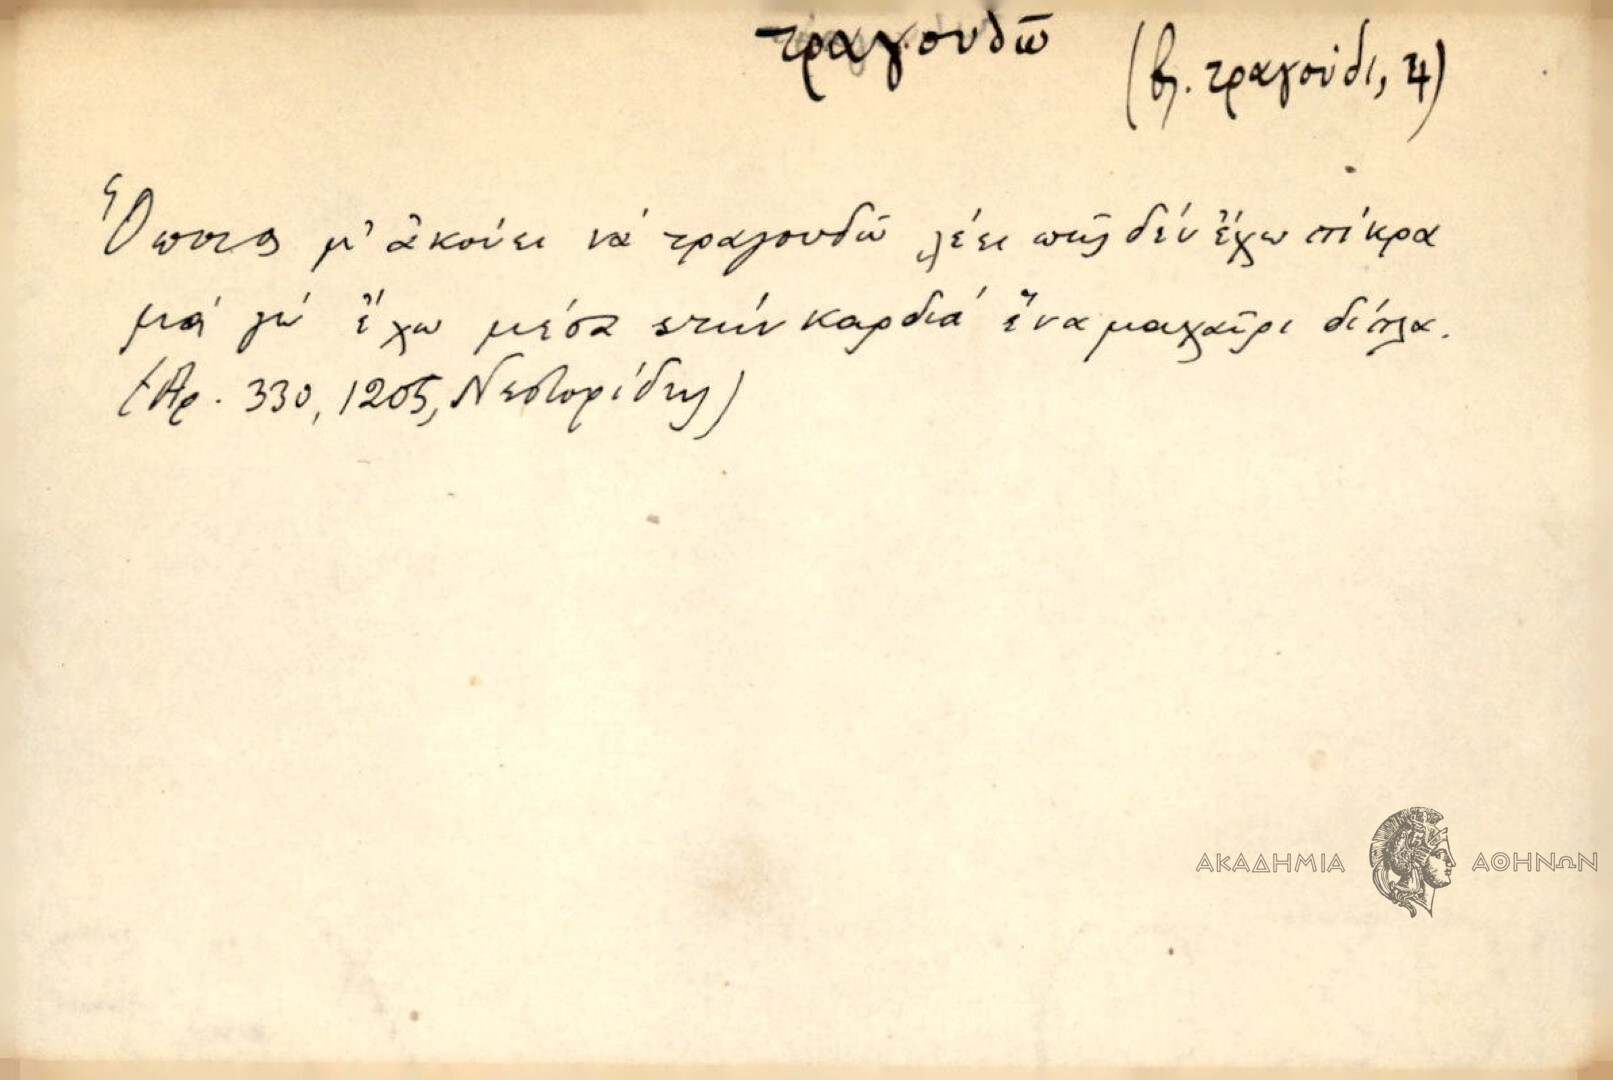 τραγουδῶ (βλ. τραγούδι, 4)
Ὅποιος μ' ἀκούει νά τραγουδῶ λέει πώς δέν ἔχω πίκρα
μιά γώ ἔχω μέσα στήν καρδιά ἕνα μαχαῖρι δίπλα.
(Ἀρ. 330, 1205, Νεστορίδης)
ΑΚΑΔΗΜΙΑ ΑΘΗΝΩΝ